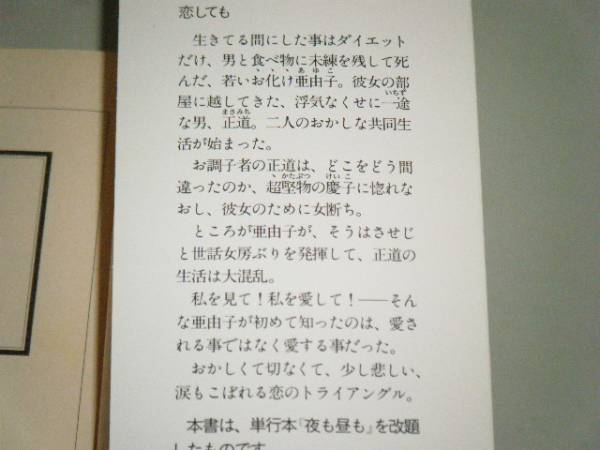 恋しても
生きてる間にした事はダイエット
だけ、男と食べ物に未練を残して死
んだ、若いお化け亜由子。彼女の部
屋に越してきた、浮気なくせに一途
な男、正道。二人のおかしな共同生
活が始まった。
お調子者の正道は、どこをどう間
違ったのか、超堅物の慶子に惚れな
おし、彼女のために女断ち。
ところが亜由子が、そうはさせじ
と世話女房ぶりを発揮して、正道の
生活は大混乱。
私を見て！私を愛して！――そん
な亜由子が初めて知ったのは、愛さ
れる事ではなく愛する事だった。
おかしくて切なくて、少し悲しい、
涙もこぼれる恋のトライアングル。
本書は、単行本「夜も昼も」を改題
したものです